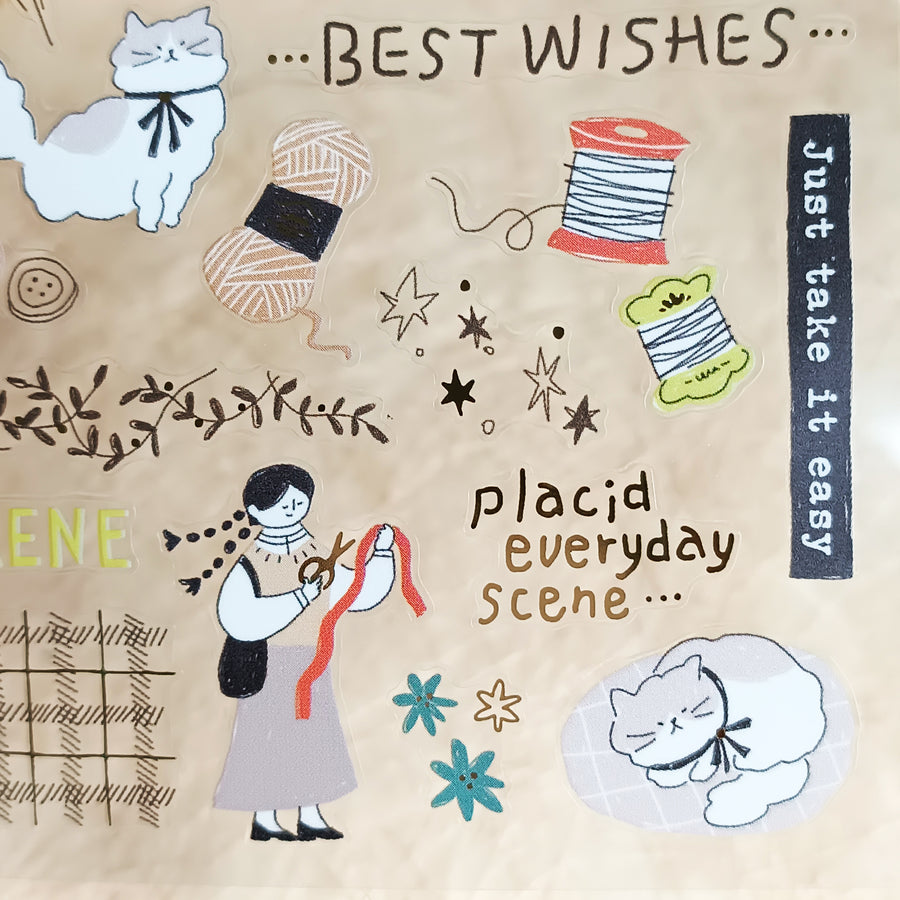 ...BEST WISHES...
Just take it easy
ENE
placid
everyday
scene...